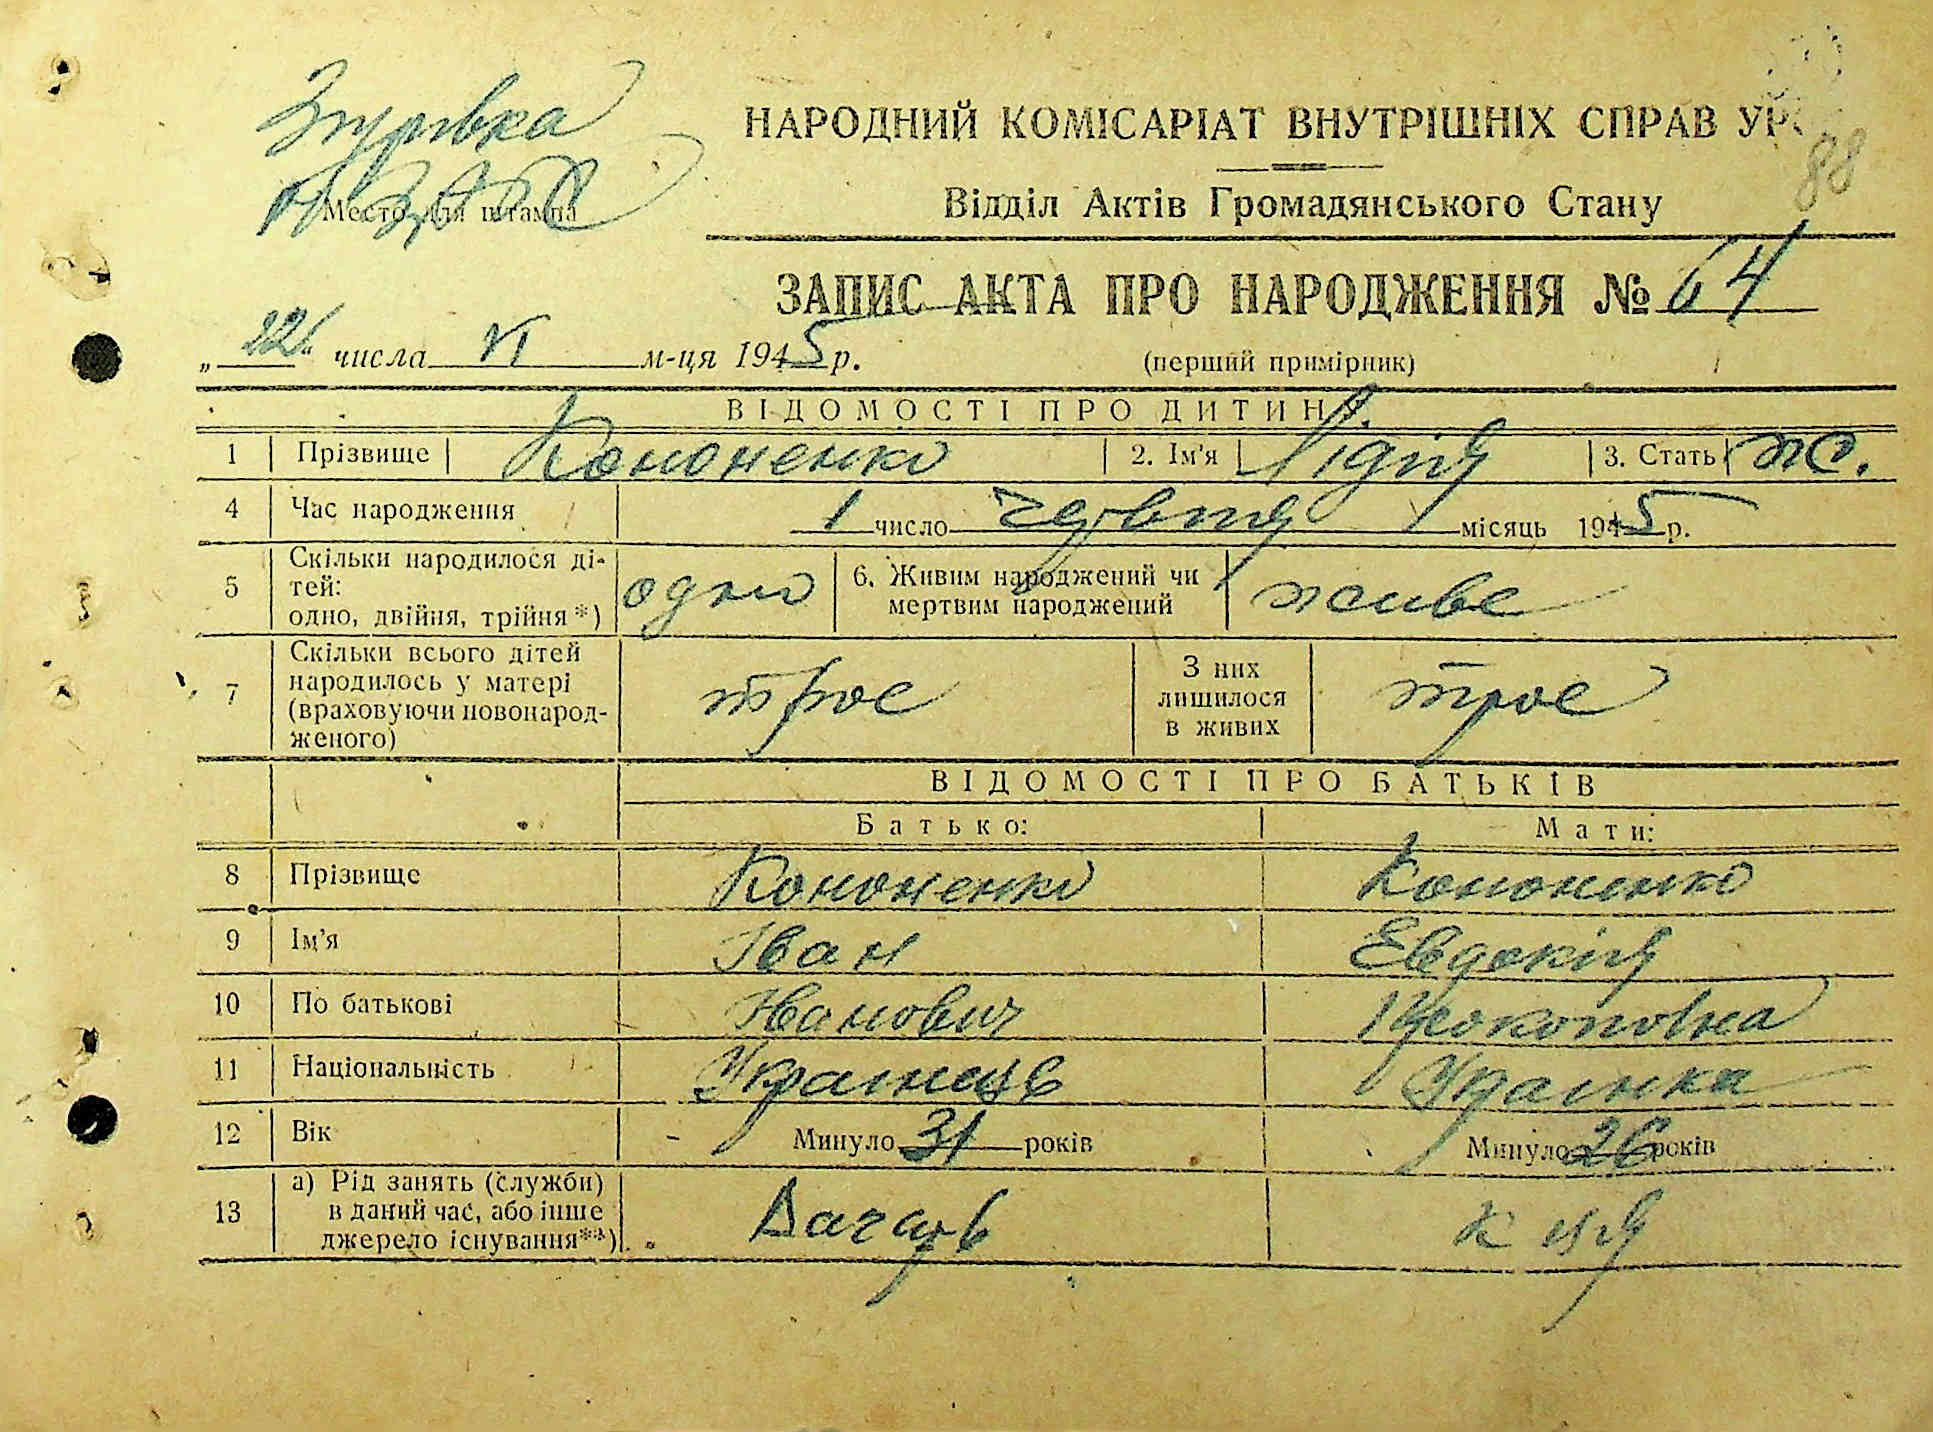 Згурівка
Место для штампа
РЗАГС
НАРОДНИЙ КОМІСАРІАТ ВНУТРІШНІХ СПРАВ УР
88
Відділ Актів Громадянського Стану
ЗАПИС АКТА ПРО НАРОДЖЕННЯ № 64
„22“ числа VI м-ця 1945 р.
(перший примірник)
ВІДОМОСТІ ПРО ДИТИНУ
1 Прізвище Кононенко 2. Ім'я Лідія 3. Стать ж.
4 Час народження 1 число червня місяць 1945 р.
5 Скільки народилося ді-
тей:
одно, двійня, трійня*) одно 6. Живим народжений чи
мертвим народжений живе
7 Скільки всього дітей
народилось у матері
(враховуючи новонарод-
женого) трое З них
лишилося
в живих трое
ВІДОМОСТІ ПРО БАТЬКІВ
Батько: Мати:
8 Прізвище Кононенко Кононенко
9 Ім'я Іван Евдокія
10 По батькові Иванович Прокоповна
11 Національність Українець Українка
12 Вік Минуло 31 років Минуло 26 років
13 а) Рід занять (служби)
в даний час, або інше
джерело існування**)